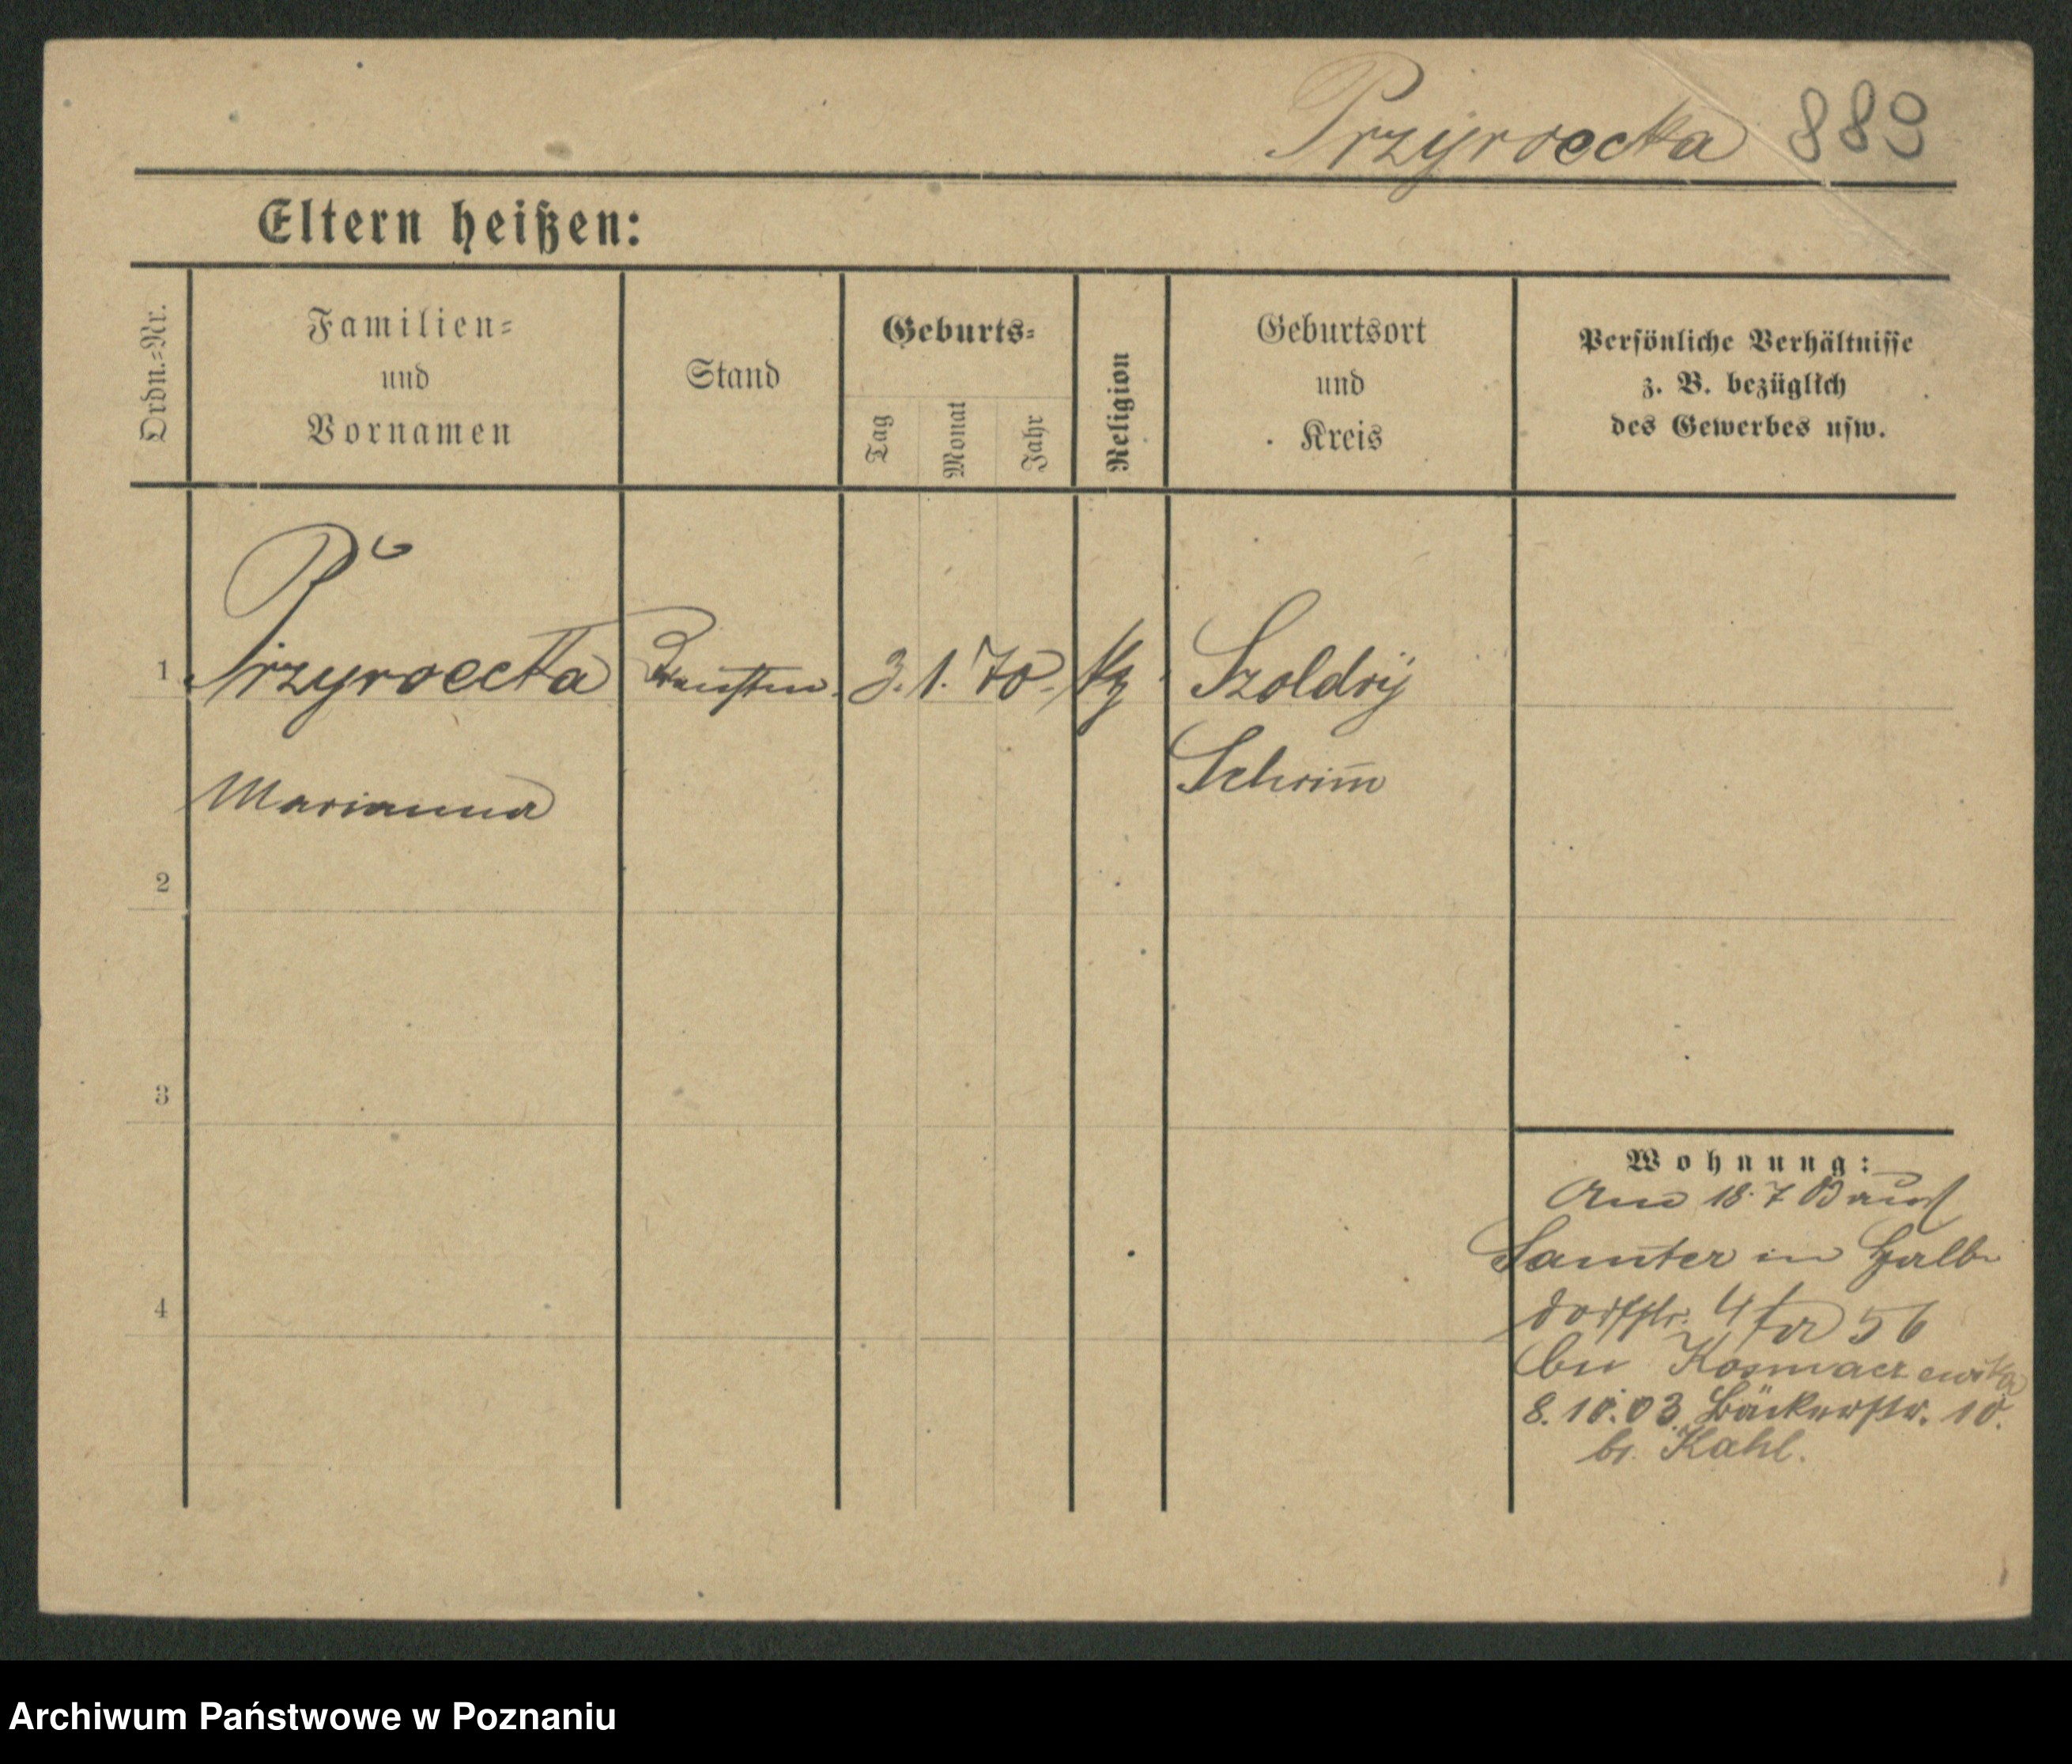 Przyroecka 889
Eltern heißen:
Ordn.-Nr.
Familien- und Vornamen
Stand
Geburts-
Tag
Monat
Jahr
Religion
Geburtsort und Kreis
Persönliche Verhältnisse
z. B. bezüglich
des Gewerbes usw.
1 Przyroecka 3. 1. 70. Szoldry
Marianna Schrim̅
2
3
4
Wohnung:
18. 7 03
Samter in Halb
dorfstr. 4 56
bei Kosmaczewska
8. 10. 03. Bäckerstr. 10.
bei Kahl.
Archiwum Państwowe w Poznaniu